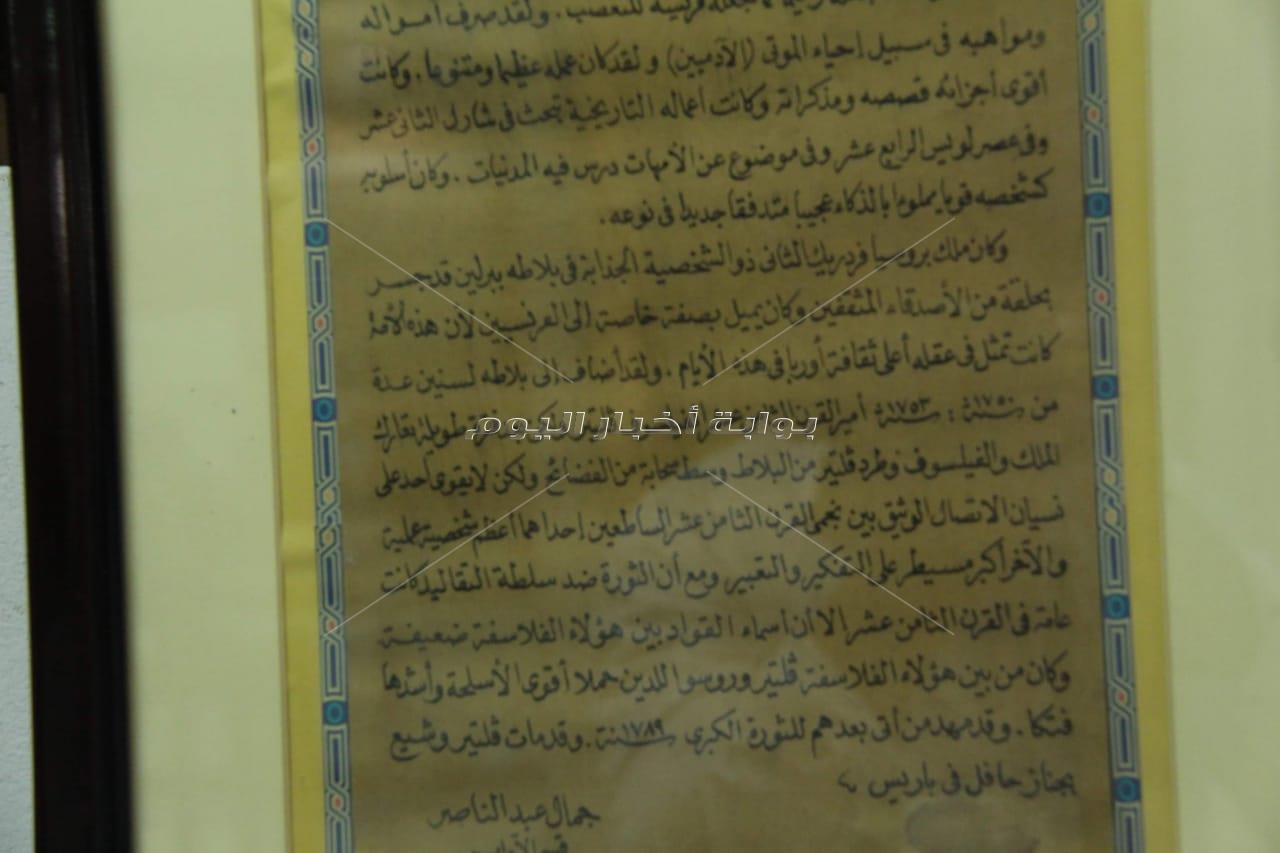 فريسة للتعصب . ولقد صرف أمواله
ومواهبه فى سبيل إحياء الموتى (الآدميين) ولقد كان عمله عظيما ومتنوعا . وكانت
أقوى أجزائه قصصه ومذكراته وكانت أعماله التاريخية تبحث فى شارل الثانى عشر
وفى عصر لويس الرابع عشر وفى موضوع عن الأمهات درس فيه المدنيات . وكان أسلوبه
كشخصه قويا مملوءا بالذكاء عجيبا متدفقا جديدا فى نوعه .
وكان ملك بروسيا فردريك الثانى ذو الشخصية الجذابة فى بلاطه ببرلين قد
بحلقة من الأصدقاء المثقفين وكان يميل بصفة خاصة الى الفرنسيين لأن هذه الأمة
كانت تمثل فى عقله أعلى ثقافة أوربا فى هذه الأيام . ولقد أضاف إلى بلاطه لسنين عدة
من سنة ١٧٥٠ : سنة ١٧٥٣ أمير القرن الثامن عشر
بوابة أخبار اليوم
الملك والفيلسوف وطرد ڤلتير من البلاط وسط سحابة من الفضائح ولكن لا يقوى أحد على
نسيان الاتصال الوثيق بين نجمى القرن الثامن عشر الساطعين إحداهما أعظم شخصية عملية
والآخر أكبر مسيطر على التفكير والتعبير ومع أن الثورة ضد سلطة التقاليد كانت
عامة فى القرن الثامن عشر الا أن أسماء القواد بين هؤلاء الفلاسفة ضعيفة
وكان من بين هؤلاء الفلاسفة ڤلتير وروسوا للذين حملا أقوى الأسلحة وأشدها
فتكا . وقد مهد من أتى بعدهم للثورة الكبرى سنة ١٧٨٩ . وقد مات ڤلتير وشيع
بجناز حافل فى باريس
جمال عبد الناصر